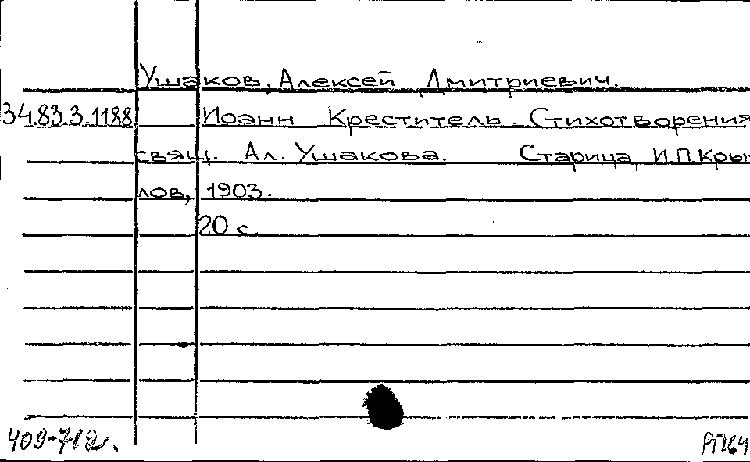 Ушаков, Алексей Дмитриевич.
34.83.3.1188 Иоанн Креститель. Стихотворения
свящ. Ал. Ушакова. Старица, И.П. Кры
лов, 1903.
20 с.
409-712.